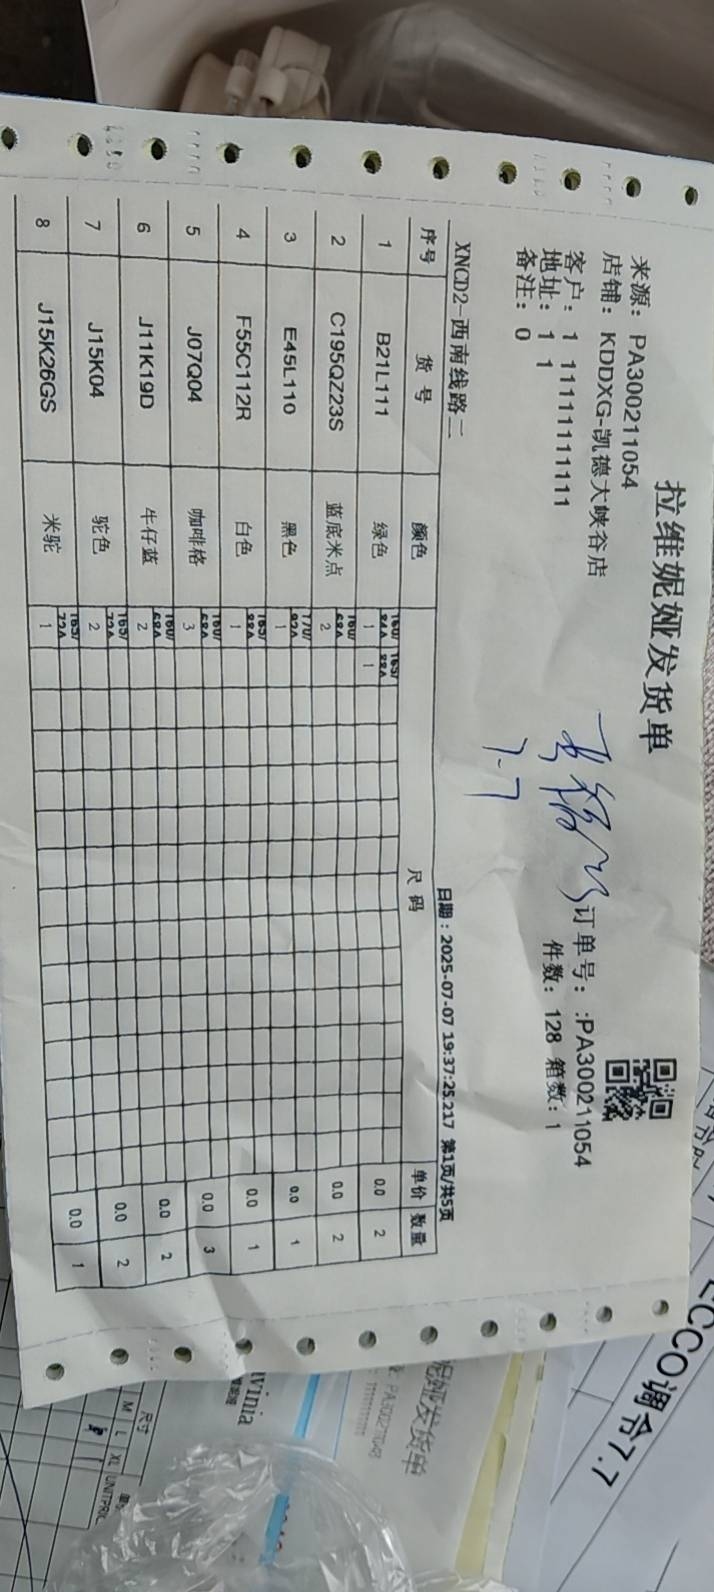 拉维妮娅发货单
来源：PA300211054
店铺：KDDXG-凯德大峡谷店
客户：1 11111111111
地址：1 1
备注：0
订单号：:PA300211054
件数：128 箱数：1
7-7
XNCD2-西南线路二
日期：2025-07-07 19:37:25.217 第1页/共5页
序号 货号 颜色 尺码 单价 数量
1 B21L111 绿色 160/84A 165/88A 1 1 0.0 2
2 C195QZ23S 蓝底米点 160/68A 2 0.0 2
3 E45L110 黑色 170/92A 1 0.0 1
4 F55C112R 白色 165/88A 1 0.0 1
5 J07Q04 咖啡格 160/68A 3 0.0 3
6 J11K19D 牛仔蓝 160/68A 2 0.0 2
7 J15K04 驼色 165/72A 2 0.0 2
8 J15K26GS 米驼 165/72A 1 0.0 1
ECCO调令7.7
妮娅发货单
PA300211048
vinia
尺寸
M L XL UNITPRIC